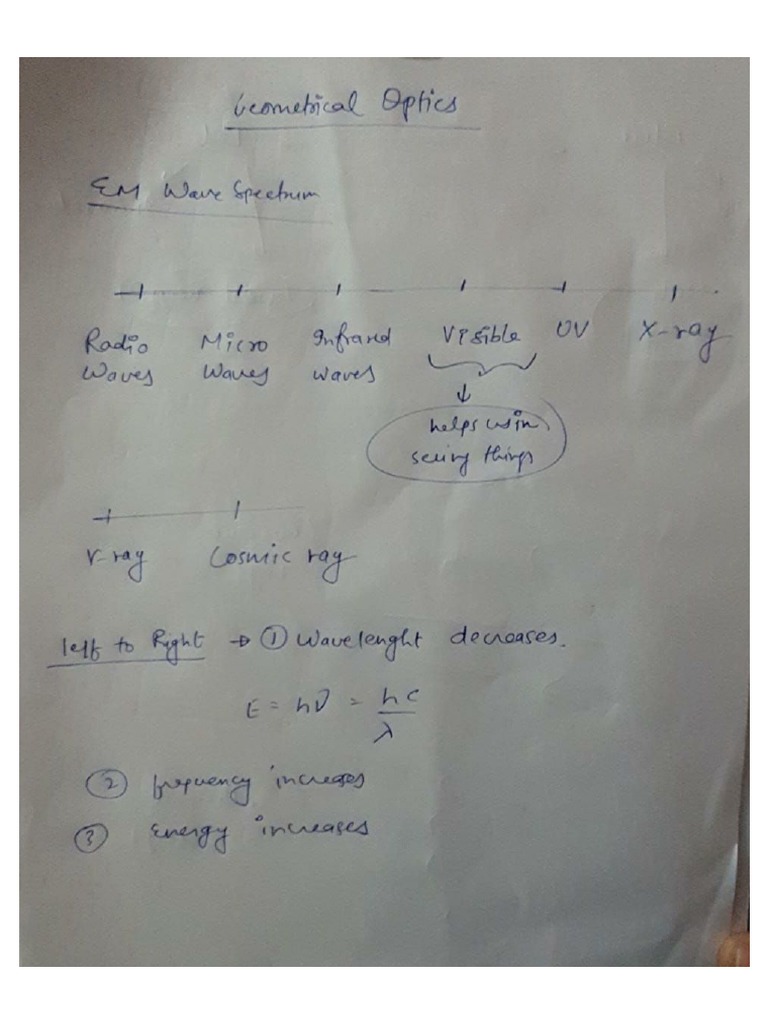 Geometrical Optics
EM Wave Spectrum
Radio Waves
Micro Waves
Infrared waves
Visible
UV
X-ray
helps us in
seeing things
γ-ray
Cosmic ray
left to Right → ① Wavelenght decreases.
E = hν = hc/λ
② frequency increases
③ Energy increases